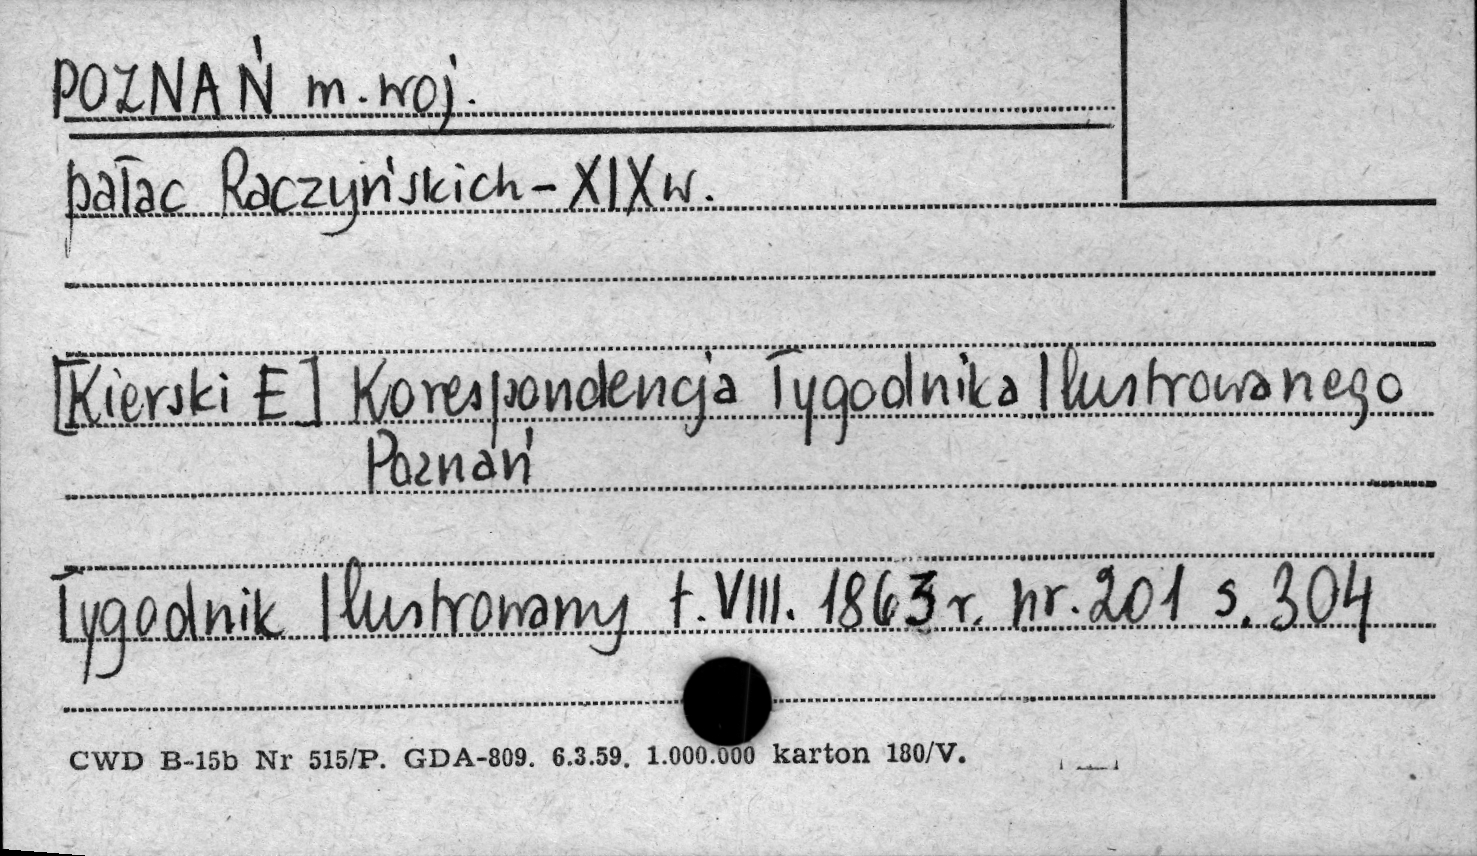 POZNAŃ m. woj.
pałac Raczyńskich - XIX w.
[Kierski E] Korespondencja Tygodnika Ilustrowanego
Poznań
Tygodnik Ilustrowany t. VIII. 1863 r. nr. 201 s. 304
CWD B-15b Nr 515/P. GDA-809. 6.3.59. 1.000.000 karton 180/V.